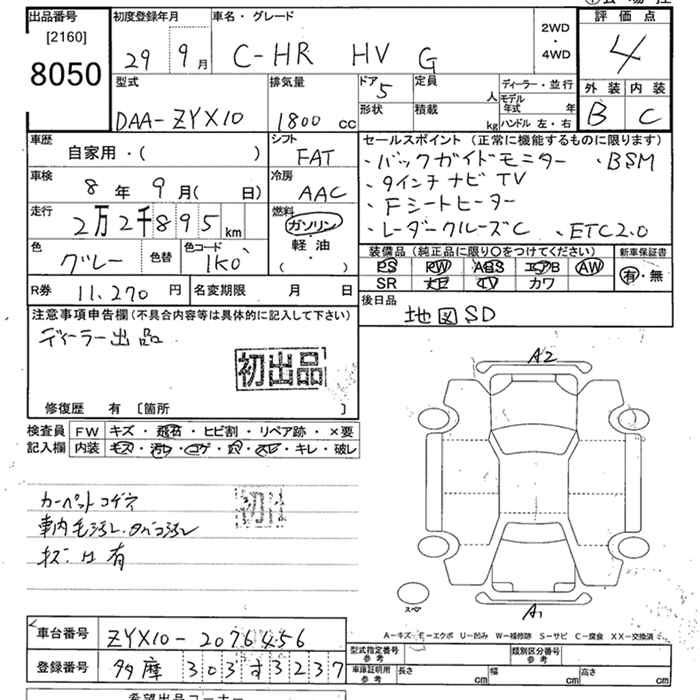 出品番号
[2160]
8050
初度登録年月
29 9月
車名・グレード
C-HR HV G
2WD
・
4WD
評価点
4
外装 内装
B C
型式
DAA-ZYX10
排気量
1800 cc
ドア
5
形状
定員
人
積載
kg
ディーラー・並行
モデル年式 年
ハンドル 左・右
車歴
自家用・( )
シフト
FAT
車検
8年 9月( 日)
冷房
AAC
走行
2万2千895 km
燃料
ガソリン
・
軽・油
( )
色
グレー
色替
色コード
1K0
R券
11,270 円
名変期限 月 日
セールスポイント (正常に機能するものに限ります)
・バックガイドモニター ・BSM
・9インチナビTV
・Fシートヒーター
・レーダークルーズC ・ETC2.0
装備品 (純正品に限り○をつけてください)
PS PW ABS エアB AW
SR ナビ TV カワ
新車保証書
有・無
後日品
地図SD
注意事項申告欄(不具合内容等は具体的に記入して下さい)
ディーラー出品
初出品
修復歴 有 [箇所 ]
検査員記入欄
FW キズ・飛石・ヒビ割・リペア跡・×要
内装 キズ・汚れ・コゲ・穴・スレ・キレ・破レ
カーペットコゲ
車内毛汚レ・タバコ汚レ
キズ 有
初出
A2
スペア
A1
A-キズ E-エクボ U-凹み W-補修跡 S-サビ C-腐食 XX-交換済
車台番号
ZYX10-2076456
登録番号
多摩 303 す 3237
型式指定番号
参考
類別区分番号
参考
車庫証明用
参考
長さ cm
幅 cm
高さ cm
希望出品コーナー